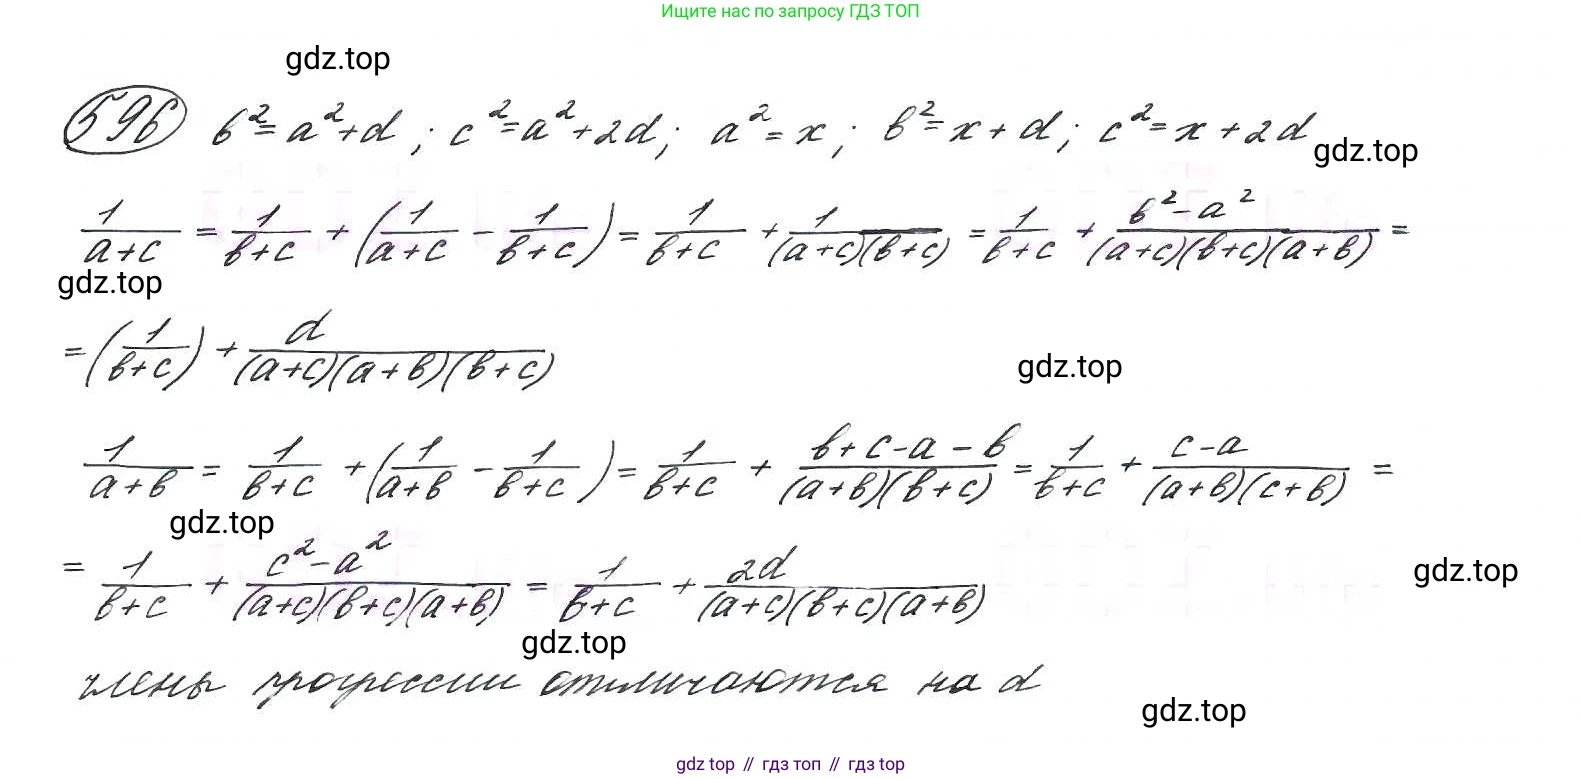 Ищите нас по запросу ГДЗ ТОП
gdz.top
596 в² = a² + d ; c² = a² + 2d ; a² = x ; в² = x + d ; c² = x + 2d
gdz.top
1/(a+c) = 1/(в+c) + (1/(a+c) - 1/(в+c)) = 1/(в+c) + 1/(a+c)(в+c) = 1/(в+c) + (в²-a²)/(a+c)(в+c)(a+в) =
gdz.top
= (1/(в+c)) + d/(a+c)(a+в)(в+c)
gdz.top
1/(a+в) = 1/(в+c) + (1/(a+в) - 1/(в+c)) = 1/(в+c) + (в+c-a-в)/(a+в)(в+c) = 1/(в+c) + (c-a)/(a+в)(c+в) =
gdz.top
= 1/(в+c) + (c²-a²)/(a+c)(в+c)(a+в) = 1/(в+c) + 2d/(a+c)(в+c)(a+в)
gdz.top
gdz.top
члены прогрессии отличаются на d
gdz.top
gdz top // гдз топ // gdz top